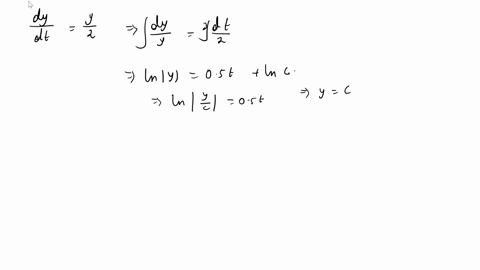 dy/dt = y/2 ⇒ ∫ dy/y = ∫ dt/2
⇒ ln|y| = 0.5t + ln c.
⇒ ln |y/c| = 0.5t ⇒ y = c